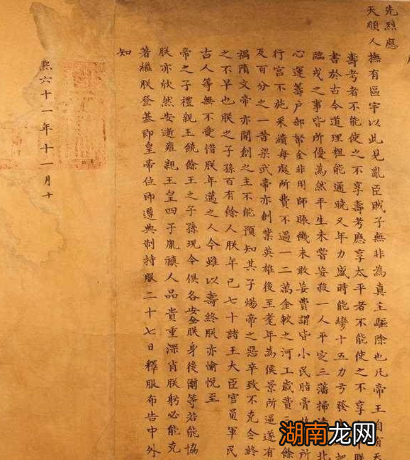 先烈應
天順人撫有區宇以此見亂臣賊子無非為真主驅除也凡帝王自有天
壽考者不能使之不享壽考應享太平者不能使之不享
書於古今道理粗能通曉又年力盛時能彎十五力弓發
臨戎之事皆所優為然平生未嘗妄殺一人平定三藩掃清漠北
心運籌戶部帑金非用師賑饑未敢妄費謂皆小民脂膏故也所
行宮不施采繢每處所費不過一二萬金較之河工歲費
及百分之一昔梁武帝亦創業英雄後至耄年為侯景所逼遂有
禍隋文帝亦開創之主不能預知其子煬帝之惡卒致不克令終
之不早也朕之子孫百有餘人朕年已七十諸王大臣官員軍民
古人等無不愛惜朕年邁之人今雖以壽終朕亦愉悅至
帝之子禮親王饒餘王之子孫現今俱各安全朕身後爾等若能協
朕亦欣然安逝雍親王皇四子胤禛人品貴重深肖朕躬必能克
著繼朕登基即皇帝位即遵典制持服二十七日釋服布告中外
知
熙六十一年十一月十
湖南龙网